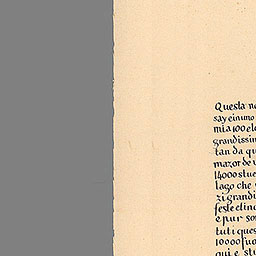 Questa
say einuno
mia 100
grandissim
tan da qu
mazor de
14000 stue
lago che
zi grandi
feste etino
e pur so
tuti ques
10000 fuo
qui e stu